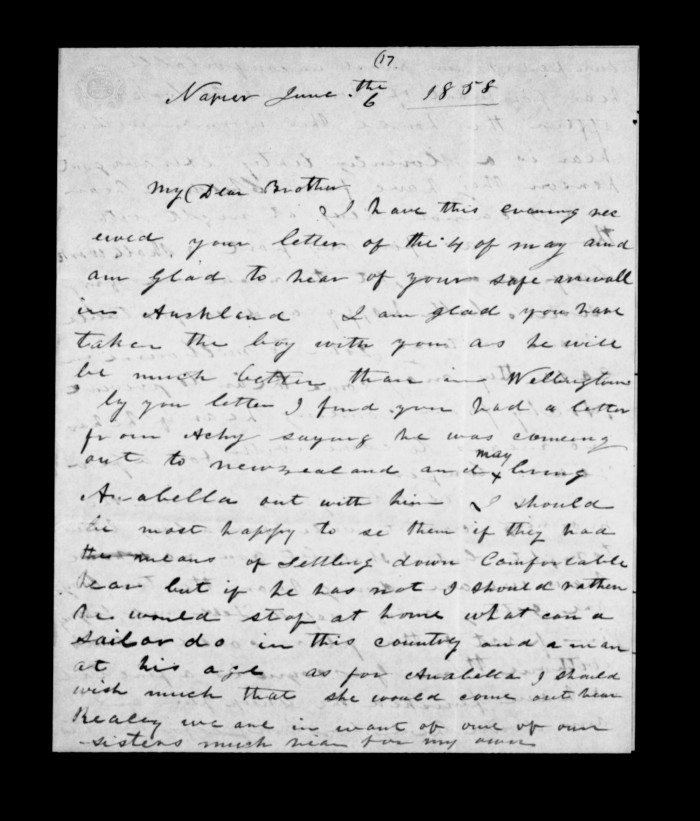 (17
Napier June the 6 1858
My Dear Brother
I have this evening rec
eived your letter of the 4 of may and
am glad to hear of your safe arivall
in Auckland I am glad you have
taken the boy with you as he will
be much better than in Wellington
by you letter I find you had a letter
from Achy saying he was comeing
out to newzealand and may bring
Anabella out with him I should
be most happy to se them if they had
the means of settling down Comfortable
hear but if he has not I should rather
he would stop at home what can a
sailor do in this country and a man
at his age as for Anabella I should
wish much that she would come out hear
Realey we are in want of one of our
sisters much hear for my own